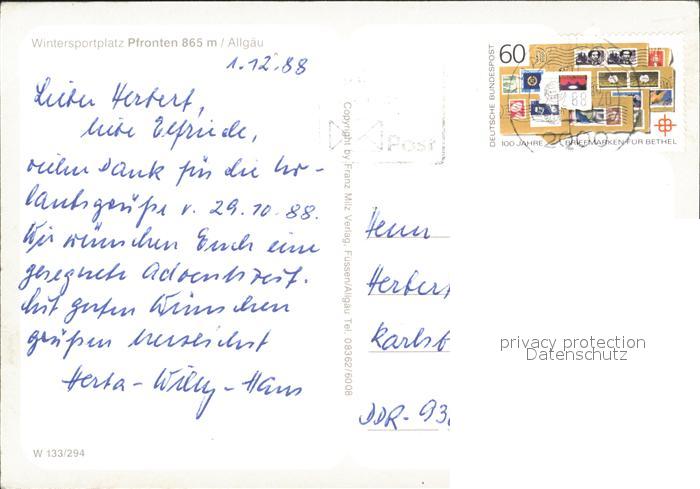 Wintersportplatz Pfronten 865 m / Allgäu
1.12.88
Lieber Herbert,
liebe Elfriede,
vielen Dank für die Ur-
laubsgrüße v. 29.10.88.
Wir wünschen Euch eine
gesegnete Adventszeit.
Mit guten Wünschen
grüßen herzlichst
Herta - Willy - Hans
W 133/294
Copyright by Franz Milz Verlag, Füssen/Allgäu Tel. 08362/6008
Post
60
DEUTSCHE BUNDESPOST
100 JAHRE BRIEFMARKEN FÜR BETHEL
Herrn
Herbert
Karlsb
DDR-93
privacy protection
Datenschutz